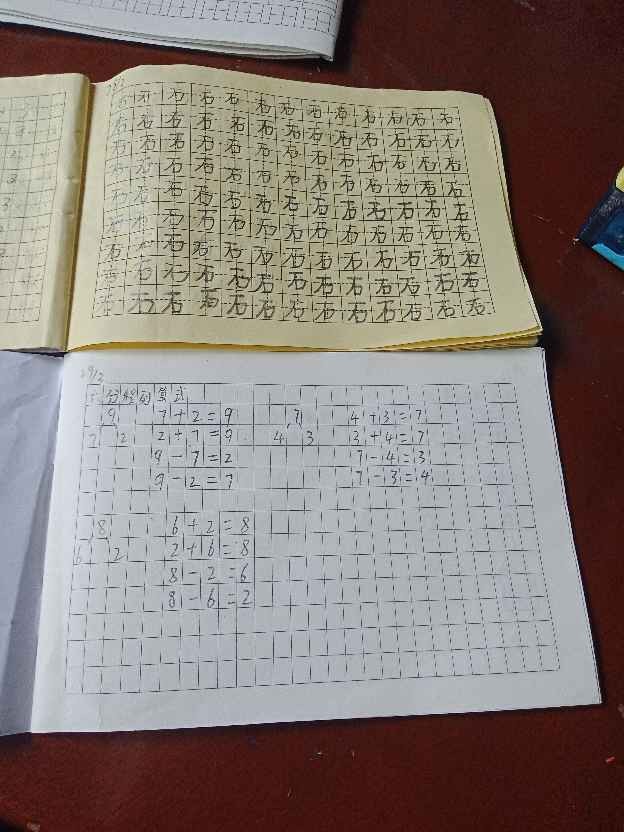 石 石 石 石 石 石 石 石 石 石 石 石 石
石 石 石 石 石 石 石 石 石 石 石 石 石
石 石 石 石 石 石 石 石 石 石 石 石 石
石 石 石 石 石 石 石 石 石 石 石 石 石
石 石 石 石 石 石 石 石 石 石 石 石 石
石 石 石 石 石 石 石 石 石 石 石 石 石
石 石 石 石 石 石 石 石 石 石 石 石 石
石 石 石 石 石 石 石 石 石 石 石 石 石
石 石 石 石 石 石 石 石 石 石 石 石 石
29/2
分解列算式
9 7+2=9 7 4+3=7
7 2 2+7=9 4 3 3+4=7
9-7=2 7-4=3
9-2=7 7-3=4
8 6+2=8
6 2 2+6=8
8-2=6
8-6=2